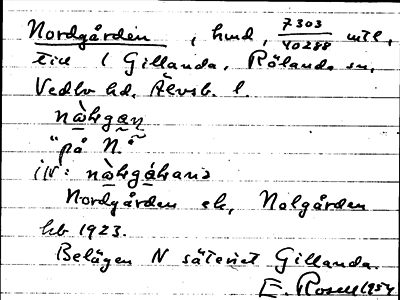 Nordgården, hmd, 7303/40288 mtl,
till 1 Gillanda, Rölanda sn,
Vedbo hd, Älvsb. l.
nὰhgaṇ
"på N."
iv: nὰhgáhana
Nordgården el, Nolgården
kb 1923.
Belägen N säteriet Gillanda.
E. Rosell 1954